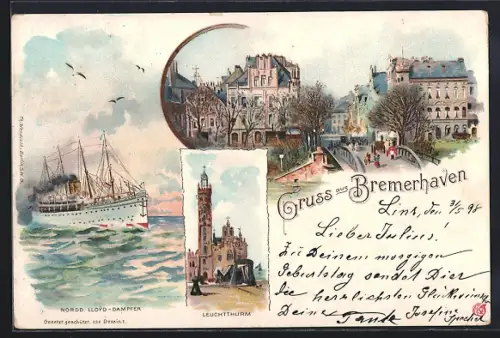 Gruss aus Bremerhaven
Linz, den 3/5 98
Lieber Julius!
Zu Deinem morgigen
Geburtstag sendet Dir
die herrlichsten Glückwünsche
Deine Tante Josefine
NORDD. LLOYD-DAMPFER
LEUCHTTHURM
Gesetzl. geschützt.